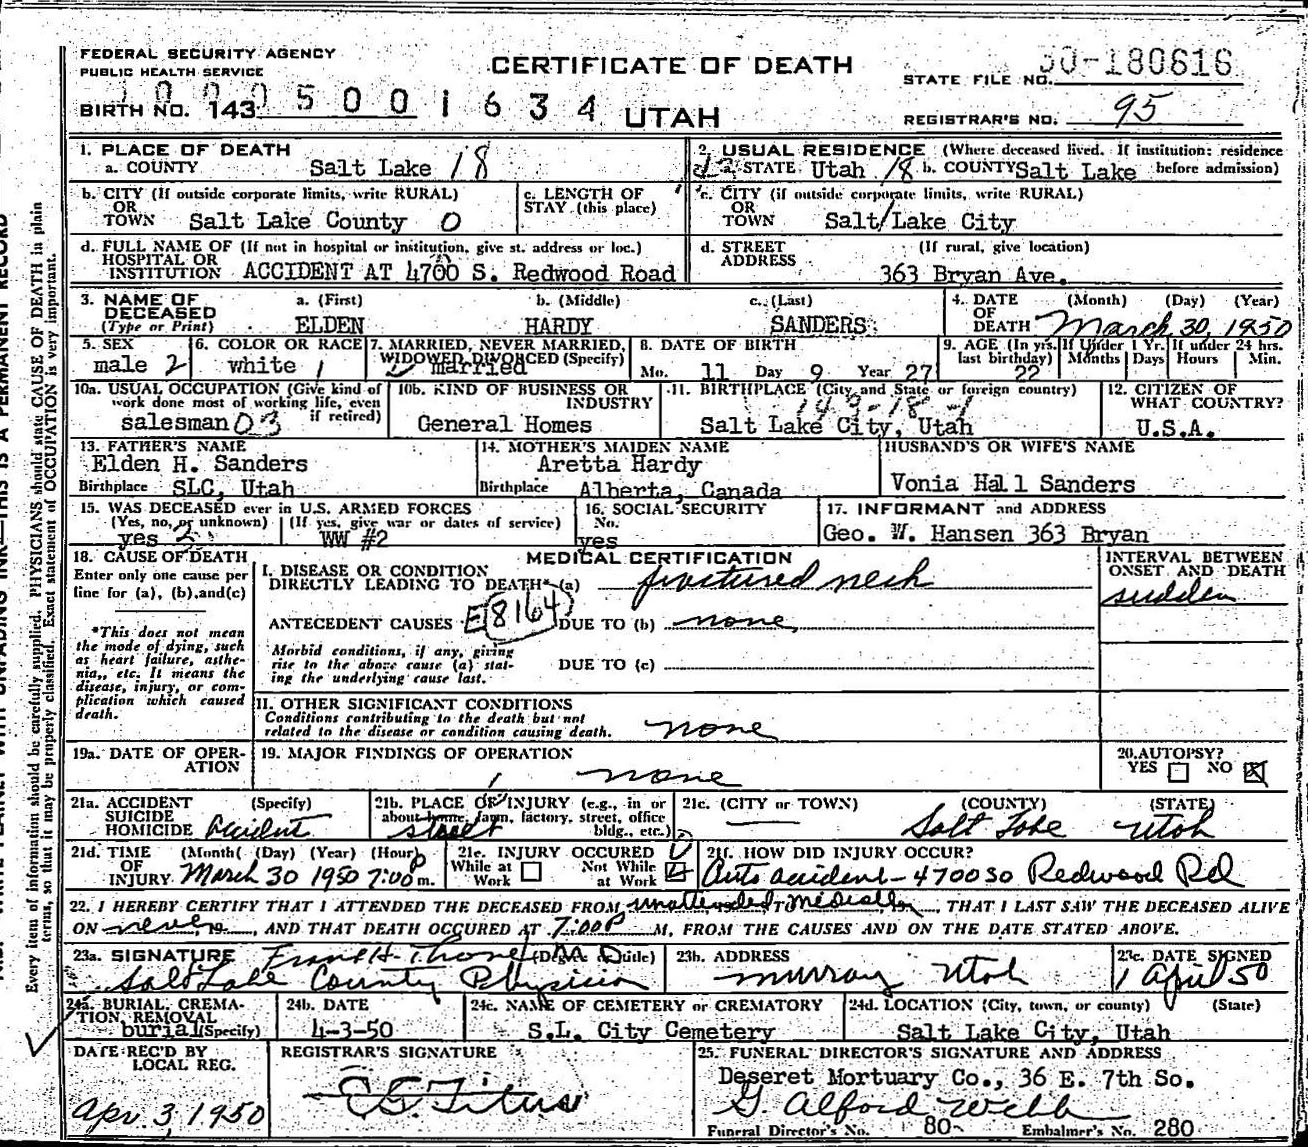 FEDERAL SECURITY AGENCY
PUBLIC HEALTH SERVICE
CERTIFICATE OF DEATH
STATE FILE NO. 50-180616
BIRTH NO. 143 5001634
UTAH
REGISTRAR'S NO. 95
1. PLACE OF DEATH
a. COUNTY Salt Lake 18
2. USUAL RESIDENCE (Where deceased lived. If institution: residence before admission)
a. STATE Utah 18 b. COUNTY Salt Lake
b. CITY (If outside corporate limits, write RURAL)
OR
TOWN Salt Lake County 0
c. LENGTH OF
STAY (this place)
c. CITY (if outside corporate limits, write RURAL)
OR
TOWN Salt Lake City
d. FULL NAME OF (If not in hospital or institution, give st. address or loc.)
HOSPITAL OR
INSTITUTION ACCIDENT AT 4700 S. Redwood Road
d. STREET (If rural, give location)
ADDRESS 363 Bryan Ave.
3. NAME OF DECEASED
(Type or Print)
a. (First) b. (Middle) c. (Last)
ELDEN HARDY SANDERS
4. DATE OF DEATH (Month) (Day) (Year)
March 30, 1950
5. SEX
male 2
6. COLOR OR RACE
white 1
7. MARRIED, NEVER MARRIED,
WIDOWED DIVORCED (Specify)
married
8. DATE OF BIRTH
Mo. 11 Day 9 Year 27
9. AGE (In yrs. last birthday) 22
If Under 1 Yr. Months Days
If under 24 hrs. Hours Min.
10a. USUAL OCCUPATION (Give kind of
work done most of working life, even
if retired)
salesman 03
10b. KIND OF BUSINESS OR
INDUSTRY
General Homes
11. BIRTHPLACE (City and State or foreign country)
143-18-1
Salt Lake City, Utah
12. CITIZEN OF
WHAT COUNTRY?
U.S.A.
13. FATHER'S NAME
Elden H. Sanders
Birthplace SLC, Utah
14. MOTHER'S MAIDEN NAME
Aretta Hardy
Birthplace Alberta, Canada
HUSBAND'S OR WIFE'S NAME
Vonia Hall Sanders
15. WAS DECEASED ever in U.S. ARMED FORCES
(Yes, no, or unknown) (If yes, give war or dates of service)
yes 2 WW #2
16. SOCIAL SECURITY
No.
yes
17. INFORMANT and ADDRESS
Geo. W. Hansen 363 Bryan
18. CAUSE OF DEATH
Enter only one cause per
line for (a), (b), and (c)
*This does not mean
the mode of dying, such
as heart failure, asthe-
nia,, etc. It means the
disease, injury, or com-
plication which caused
death.
MEDICAL CERTIFICATION
I. DISEASE OR CONDITION
DIRECTLY LEADING TO DEATH* (a) fractured neck
INTERVAL BETWEEN
ONSET AND DEATH
sudden
ANTECEDENT CAUSES E8164 DUE TO (b) none
Morbid conditions, if any, giving
rise to the above cause (a) stat-
ing the underlying cause last.
DUE TO (c)
II. OTHER SIGNIFICANT CONDITIONS
Conditions contributing to the death but not
related to the disease or condition causing death.
none
19a. DATE OF OPER-
ATION
19. MAJOR FINDINGS OF OPERATION
none
20. AUTOPSY?
YES NO X
21a. ACCIDENT (Specify)
SUICIDE
HOMICIDE accident
21b. PLACE OF INJURY (e.g., in or
about home, farm, factory, street, office
bldg., etc.)
street
21c. (CITY or TOWN) (COUNTY) (STATE)
— Salt Lake Utah
21d. TIME (Month) (Day) (Year) (Hour)
OF
INJURY March 30 1950 7:00 p m.
21e. INJURY OCCURED
While at Work Not While at Work
21f. HOW DID INJURY OCCUR?
Auto accident - 4700 So Redwood Rd
22. I HEREBY CERTIFY THAT I ATTENDED THE DECEASED FROM unattended TO medically, THAT I LAST SAW THE DECEASED ALIVE
ON never 19, AND THAT DEATH OCCURED AT 7:00 P M, FROM THE CAUSES AND ON THE DATE STATED ABOVE.
23a. SIGNATURE (Degree or title)
M D
Salt Lake County Physician
23b. ADDRESS
Murray Utah
23c. DATE SIGNED
1 April 50
24a. BURIAL, CREMA-
TION REMOVAL
burial (Specify)
24b. DATE
4-3-50
24c. NAME OF CEMETERY OR CREMATORY
S.L. City Cemetery
24d. LOCATION (City, town, or county) (State)
Salt Lake City, Utah
DATE REC'D BY
LOCAL REG.
Apr. 3, 1950
REGISTRAR'S SIGNATURE
25. FUNERAL DIRECTOR'S SIGNATURE AND ADDRESS
Deseret Mortuary Co., 36 E. 7th So.
G. Alford Webb
Funeral Director's No. 80 Embalmer's No. 280
Every item of information should be carefully supplied. PHYSICIANS should state CAUSE OF DEATH in plain
terms, so that it may be properly classified. Exact statement of OCCUPATION is very important.